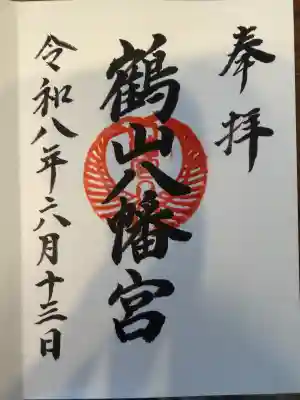 奉拝
鶴山八幡宮
令和八年六月十三日